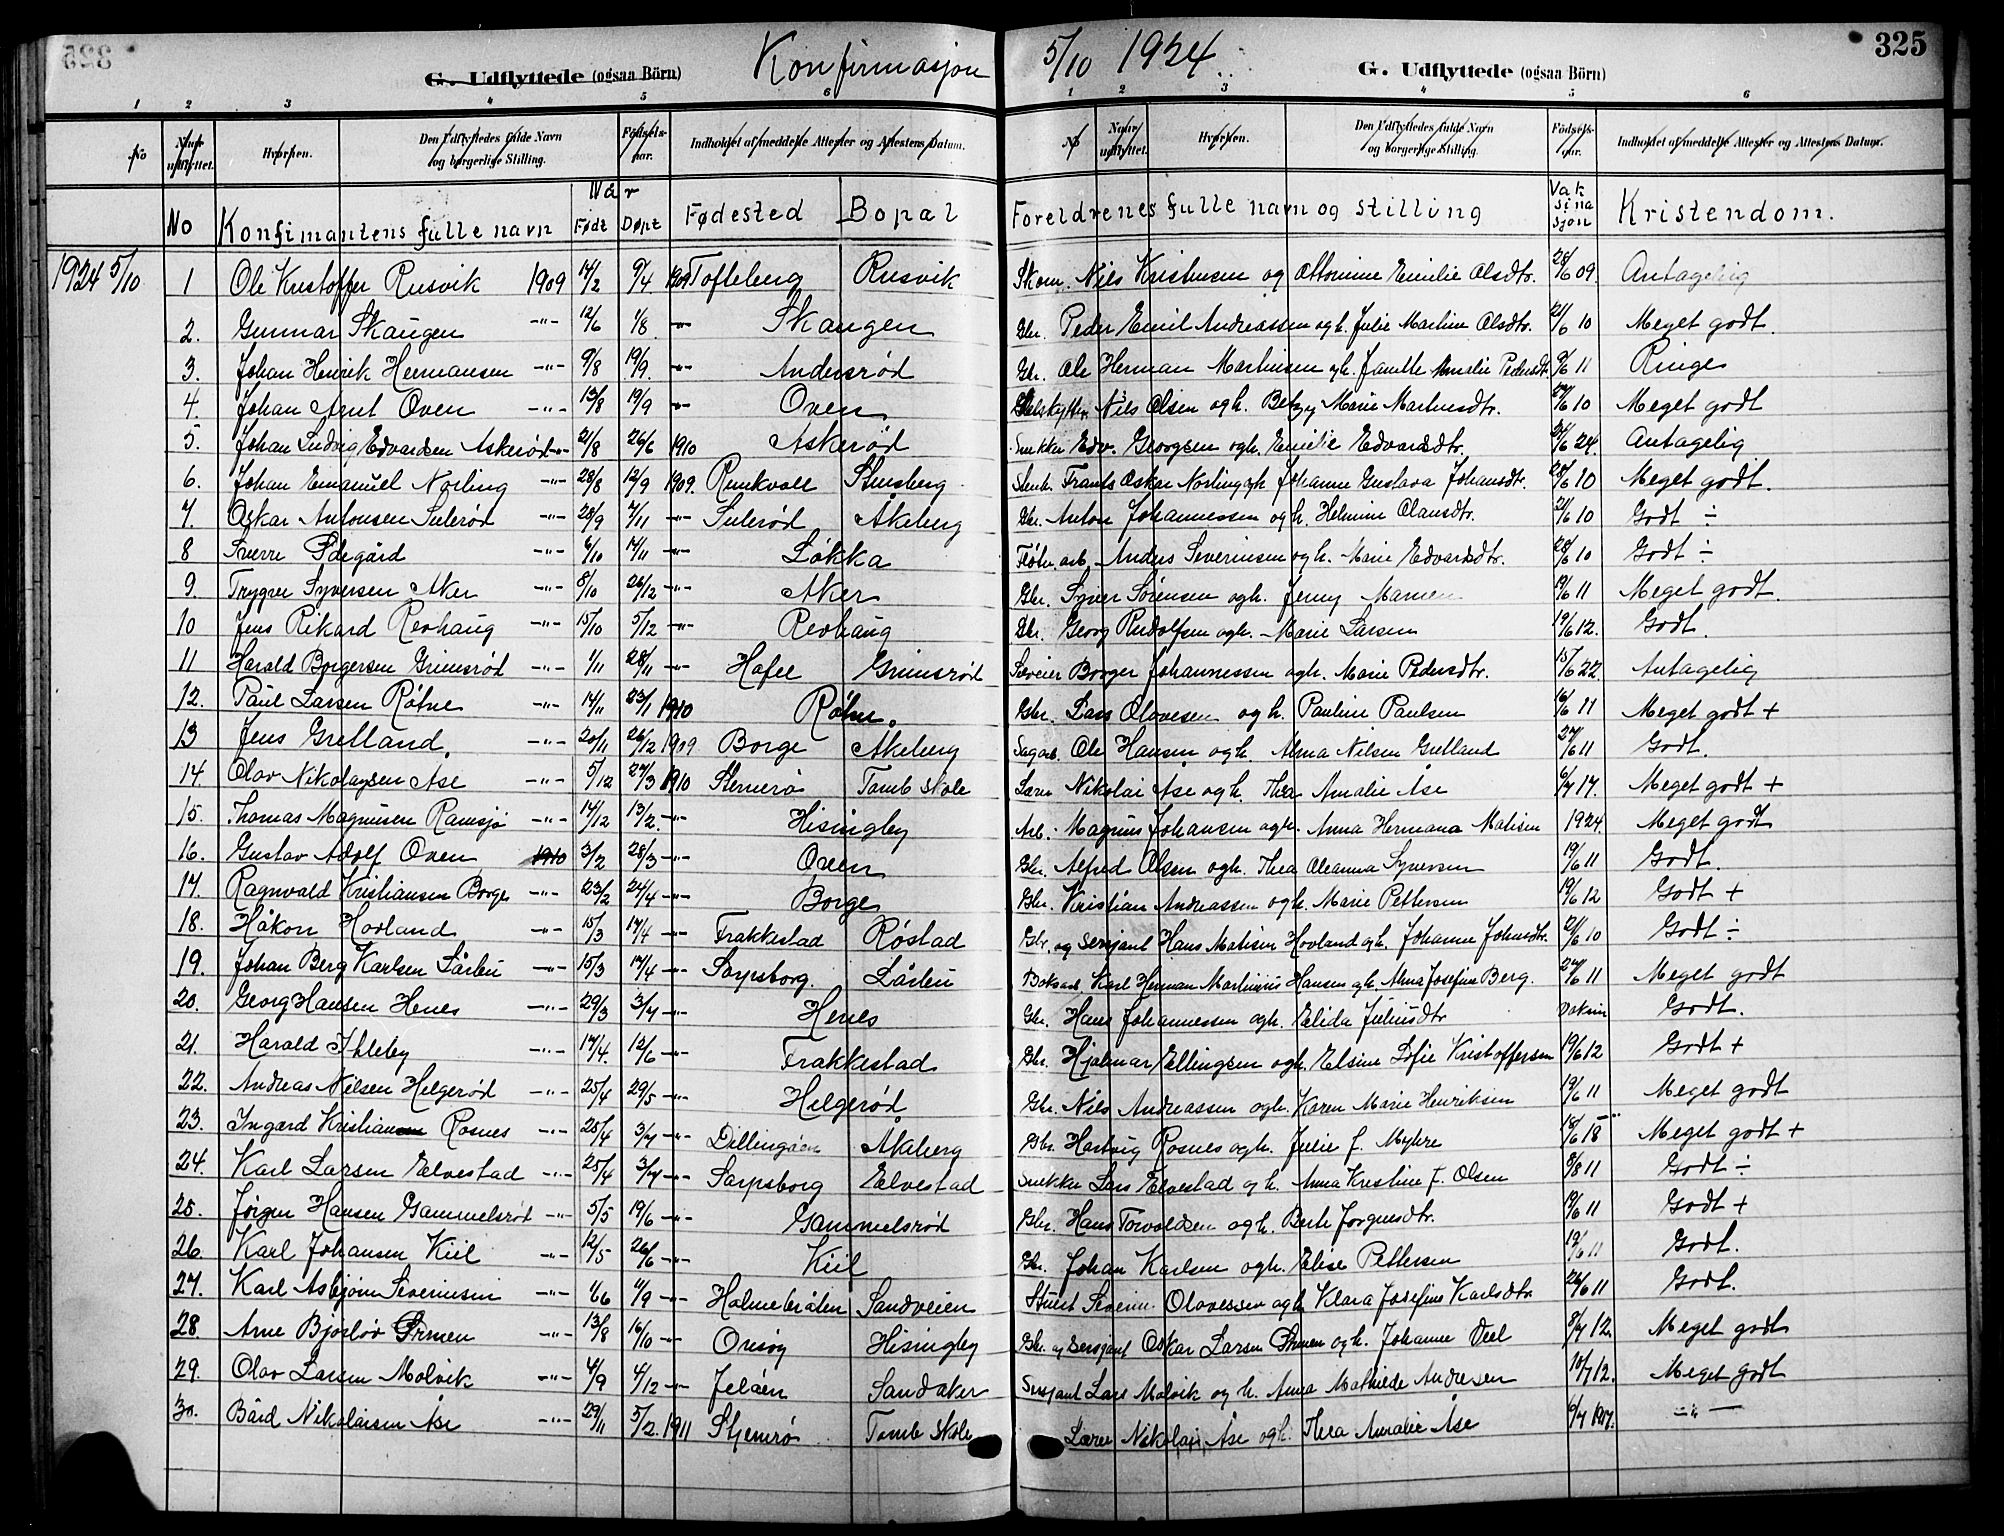 Konfirmasjon 5/10 1924.
325
G. Udflyttede (ogsaa Börn)
G. Udflyttede (ogsaa Börn)
1 2 3 4 5 6
1 2 3 4 5 6
No Naar udflyttet. Hvorhen. Den Udflyttedes fulde Navn og borgerlige Stilling. Fødsels-aar. Indholdet af meddelte Attester og Attestens Datum.
No Naar udflyttet. Hvorhen. Den Udflyttedes fulde Navn og borgerlige Stilling. Fødsels-aar. Indholdet af meddelte Attester og Attestens Datum.
No Konfimantens fulle navn Når Født Døpt Fødested Bopal Foreldrenes fulle navn og stilling Vaksinasjon Kristendom.
1924 5/10 1 Ole Kristoffer Rusvik 1909 14/2 9/4 1909 Tofteberg Rusvik Skom. Nils Kristensen og Ottomine Emilie Olsdtr. 28/6 09. Antagelig
2. Gunnar Skaugen -"- 12/6 1/8 -"- Skaugen Gbr. Peder Emil Andreassen og h. Julie Martine Olsdtr. 21/6 10 Meget godt.
3. Johan Henrik Hermansen -"- 9/8 19/9. -"- Andersrød Gbr. Ole Herman Martinsen og h. Amalie Pedersdtr. 11 Ringe
4. Johan Arnt Oven -"- 13/8 19/9 -"- Oven Nils Olsen og h. Marie 10 Meget godt
5. Johan Ludvig Edvardsen Askerød -"- 21/8 26/6 1910 Askerød Snekker Edv. Georgsen og h. Emilie Edvardsdtr. 24. Antagelig
6. Johan Emanuel Norling -"- 28/8 12/9 1909. Stensberg Frants Oskar Norling og h. Johanne Gustava Johansdtr. 28/6 10 Meget godt.
7. Oskar Antonsen Sulerød -"- 28/9 7/11 -"- Sulerød Åkeberg Gbr. Anton Johannessen og h. Helmine Olausdtr. 21/6 10 Godt ÷
8 Sverre Ødegård -"- 14/11 -"- Løkka Anders Severinsen og h. Marie Edvardsdtr. 28/6 10 Godt ÷
9. Trygve Syversen Aker -"- 8/10 26/12 -"- Aker Gbr. Syver Sørensen og h. Jenny 19/6 11 Meget godt.
10 Jens Rikard Revhaug -"- 15/10 5/12 -"- Revhaug Gbr. Georg Rudolfsen og h. Marie Larsen 19/6 12. Godt.
11 Harald Borgersen Grimsrød -"- 1/11 28/11 -"- Hafee Grimsrød Borger Johannessen og h. Marie Pedersdtr. 15/6 22. Antagelig
12. Paul Larsen Røtne -"- 14/11 23/1 1910 Røtne. Gbr. Lars Olavesen og h. Pauline Paulsen 16/6 11 Meget godt +
13 Jens Gretland. -"- 20/11 26/12 1909 Borge Åkeberg Sagarb. Ole Hansen og h. Alma Nilsen Gretland 27/6 11 Godt.
14. Olav Nikolaysen Åse -"- 5/12 27/3 1910 Stemerø Tomb skole Lærer Nikolai Åse og h. Thea Amalie Åse 6/7 17. Meget godt +
15. Thomas Magnusen Ramsjø -"- 14/12 13/2. -"- Hisingby Arb. Magnus Johansen og h. Anna Hermana Matisen 1924. Meget godt
16. Gustav Adolf Oven 1910 3/2 28/3 -"- Oven Gbr. Alfred Olsen og h. Thea Oleanna Syversen 19/6 11 Godt.
17. Ragnvald Kristiansen Borge -"- 23/2 24/4 -"- Borge Gbr. Kristian Andreassen og h. Marie Pettersen 19/6 12 Godt +
18. Håkon Hovland -"- 15/3 17/4 -"- Trakkestad Røstad Gbr. og Sersjant Hans Matisen Hovland og h. Johanne 21/6 10 Godt ÷
19. Johan Berg Karlsen Lårbu -"- 15/3 17/4 -"- Sarpsborg. Lårbu Karl Herman Martinius Hansen og h. Alma Josefine Berg. 27/6 11 Meget godt
20. Georg Hansen Henes -"- 29/3 3/7 -"- Henes Gbr. Hans Johannessen og h. Elida Juliusdtr Vaksin Godt.
21. Harald Ihleby -"- 17/4. 12/6 -"- Trakkestad Gbr. Hjalmar Ellingsen og h. Elsine Sofie Kristoffersen 19/6 12 Godt +
22. Andreas Nilsen Helgerød -"- 25/4 29/5 -"- Helgerød Gbr. Nils Andreassen og h. Karen Marie Henriksen 19/6 11 Meget godt
23. Ingard Kristiansen Rosnes -"- 25/4 3/7 -"- Dillingøen Åkeberg Gbr. Hartvig Rosnes og h. Julie J. Myhre 18/6 18 Meget godt +
24. Karl Larsen Elvestad -"- 25/4 3/7 -"- Sarpsborg Elvestad Snekker Lars Elvestad og h. Anna Kristine F. Olsen 8/8 11 Godt ÷
25. Jørgen Hansen Gammelsrød -"- 5/5 19/6 -"- Gammelsrød Gbr. Hans Torvaldsen og h. Berte Jørgensdtr. 19/6 11 Godt +
26. Karl Johansen Kiil -"- 12/5 26/6 -"- Kiil Gbr. Johan Karlsen og h. Elise Pettersen 19/6 11 Godt.
27. Karl Asbjørn Severinsen -"- 1/6 4/9 -"- Holmebråten Sandveien Severin Olavessen og h. Klara Josefine Karlsdtr. 26/6 11 Godt.
28. Arne Bjørløv Grmen -"- 13/8 16/10 -"- Onsøy Hisingby Gbr. og Sersjant Oskar Larsen og h. Johanne 8/7 12. Meget godt
29. Olav Larsen Molvik -"- 4/9 4/12 -"- Jeløen Sandaker Sersjant Lars Molvik og h. Anna Mathilde Andresen 10/7 12. Meget godt
30. Bård Nikolaisen Åse -"- 29/11 5/2. 1911 Stjernrø Tomb skole Lærer Nikolai Åse og h. Thea Amalie Åse 6/7 1917. -"-